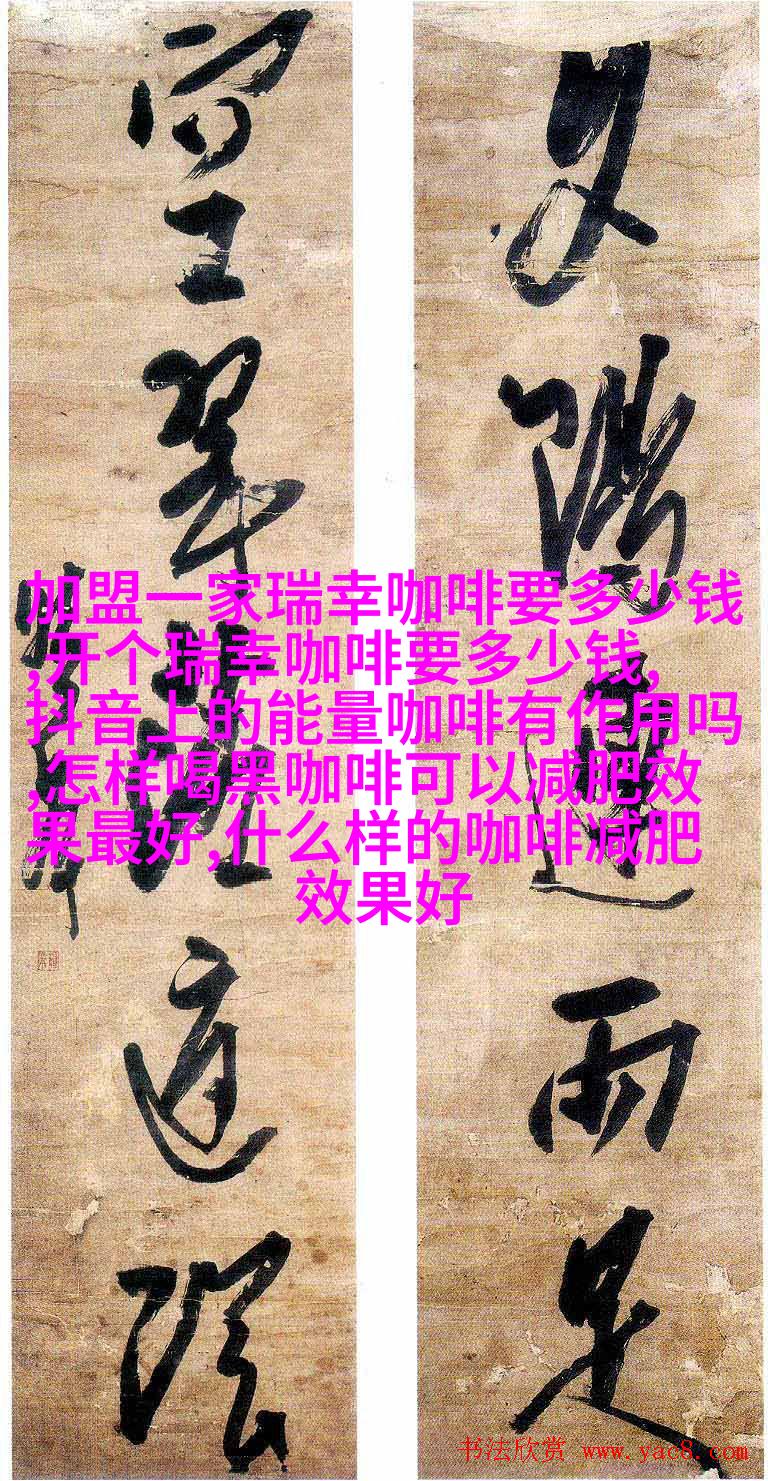 加盟一家瑞幸咖啡要多少钱
,开个瑞幸咖啡要多少钱,
抖音上的能量咖啡有作用吗
,怎样喝黑咖啡可以减肥效
果最好,什么样的咖啡减肥
效果好
夕陽連雨足
空翠落庭陰
书法欣赏 www.yac8.com